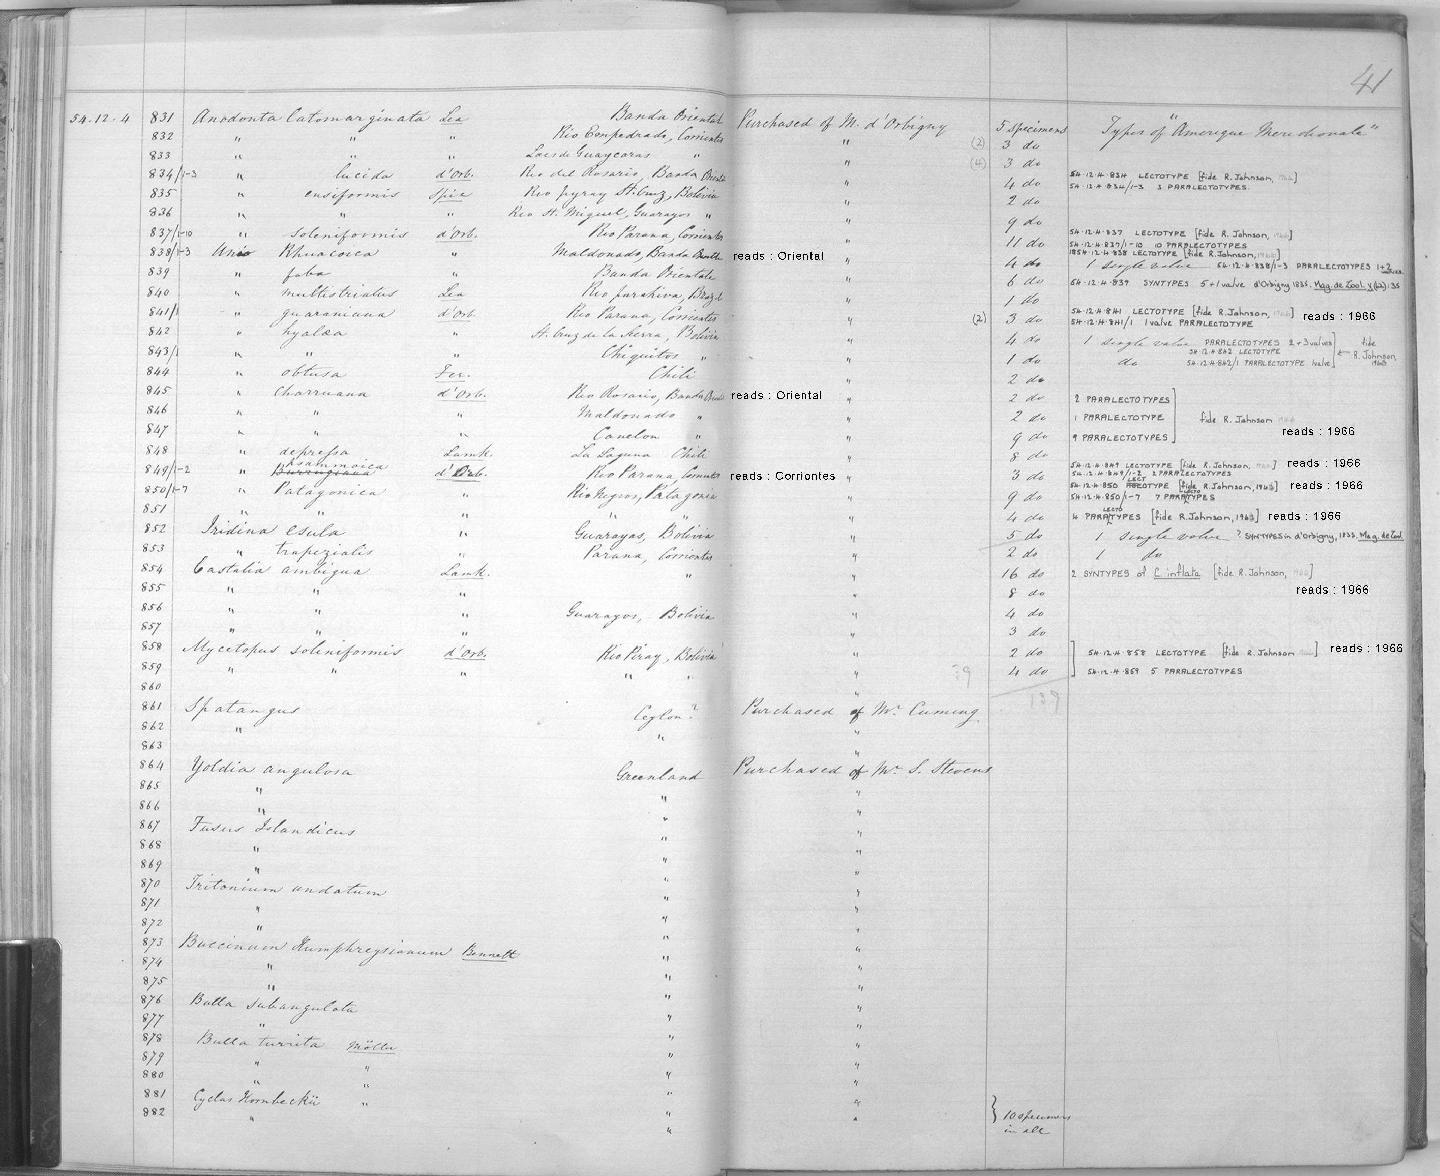 41
54.12.4 831 Anodonta latomarginata Lea Banda Oriental Purchased of M. d'Orbigny 5 specimens Types of "Amerique Meridionale"
832 " " " Rio Empedrado, Corrientes " (2) 3 do
833 " " " Lacs de Guaycoras " " (4) 3 do
834/1-3 " lucida d'Orb. Rio del Rosario, Banda Oriental " 4 do 54.12.4.834 LECTOTYPE [fide R. Johnson, ]
54.12.4.834/1-3 3 PARALECTOTYPES.
835 " ensiformis Spix Rio pyray St. Cruz, Bolivia " 2 do
836 " " " Rio St. Miguel, Guarayos " " 9 do
837/1-10 " soleniformis d'Orb. Rio Parana, Corrientes " 11 do 54.12.4.837 LECTOTYPE [fide R. Johnson, ]
54.12.4.837/1-10 10 PARALECTOTYPES
838/1-3 Unio Rhuacoica " Maldonado, Banda reads : Oriental " 4 do 1854.12.4.838 LECTOTYPE [fide R. Johnson, ]
1 single valve 54.12.4.838/1-3 PARALECTOTYPES 1+2
839 " faba " Banda Orientale " 6 do 54.12.4.839 SYNTYPES 5+1 valve d'Orbigny 1835. Mag. de Zool. V(62):35
840 " multistriatus Lea Rio parahiva, Brazil " 1 do
841/1 " guaraniana d'Orb Rio Parana, Corrientes " (2) 3 do 54.12.4.841 LECTOTYPE [fide R. Johnson, ] reads : 1966
54.12.4.841/1 1 valve PARALECTOTYPE
842 " hyalæa " St. Cruz de la Sierra, Bolivia " 4 do 1 single valve PARALECTOTYPES 2+3 valves fide
54.12.4.842 LECTOTYPE R. Johnson,
843/1 " " " Chiquitos " " 1 do do 54.12.4.842/1 PARALECTOTYPE 1 valve
844 " obtusa Fer. Chili " 2 do
845 " Charruana d'Orb. Rio Rosario, Banda reads : Oriental " 2 do 2 PARALECTOTYPES
846 " " " Maldonado " " 2 do 1 PARALECTOTYPE fide R. Johnson
847 " " " Canelon " " 9 do 9 PARALECTOTYPES reads : 1966
848 " depressa Lamk. La Laguna Chili " 8 do
849/1-2 " psammoica d'Orb. Rio Parana, Corrientes reads : Corriontes " 3 do 54.12.4.849 LECTOTYPE [fide R. Johnson, ] reads : 1966
54.12.4.849/1-2 2 PARALECTOTYPES
850/1-7 " Patagonica " Rio Negros, Patagonia " 9 do 54.12.4.850 LECTOTYPE [fide R. Johnson, 1966] reads : 1966
54.12.4.850/1-7 7 PARALECTOTYPES
851 " " " " " " 4 do 4 PARALECTOTYPES [fide R. Johnson, 1966] reads : 1966
852 Iridina esula " Guarayas, Bolivia " 5 do 1 single valve ? SYNTYPES in d'Orbigny, 1835. Mag. de Zool.
853 " trapezialis " Parana, Corrientes " 2 do 1 do
854 Castalia ambigua Lamk. " " 16 do 2 SYNTYPES of C. inflata [fide R. Johnson, ]
855 " " " " 8 do reads : 1966
856 " " " Guarayos, Bolivia " 4 do
857 " " " " 3 do
858 Mycetopus soleniformis d'Orb. Rio Piray, Bolivia " 2 do 54.12.4.858 LECTOTYPE [fide R. Johnson ] reads : 1966
859 " " " " " " 4 do 54.12.4.859 5 PARALECTOTYPES
860 " 39 139
861 Spatangus Ceylon? Purchased of Mr. Cuming
862 " " "
863 "
864 Yoldia angulosa Greenland Purchased of Mr. S. Stevens
865 " " "
866 " " "
867 Fusus Islandicus " "
868 " " "
869 " " "
870 Tritonium undatum " "
871 " " "
872 " " "
873 Buccinum Humphreysianum Bennett " "
874 " " "
875 " " "
876 Bulla subangulata " "
877 " " "
878 Bulla turrita Möller " "
879 " " " "
880 " " " "
881 Cyclas Hornbeckii " " "
882 " " " 10 specimens
in all